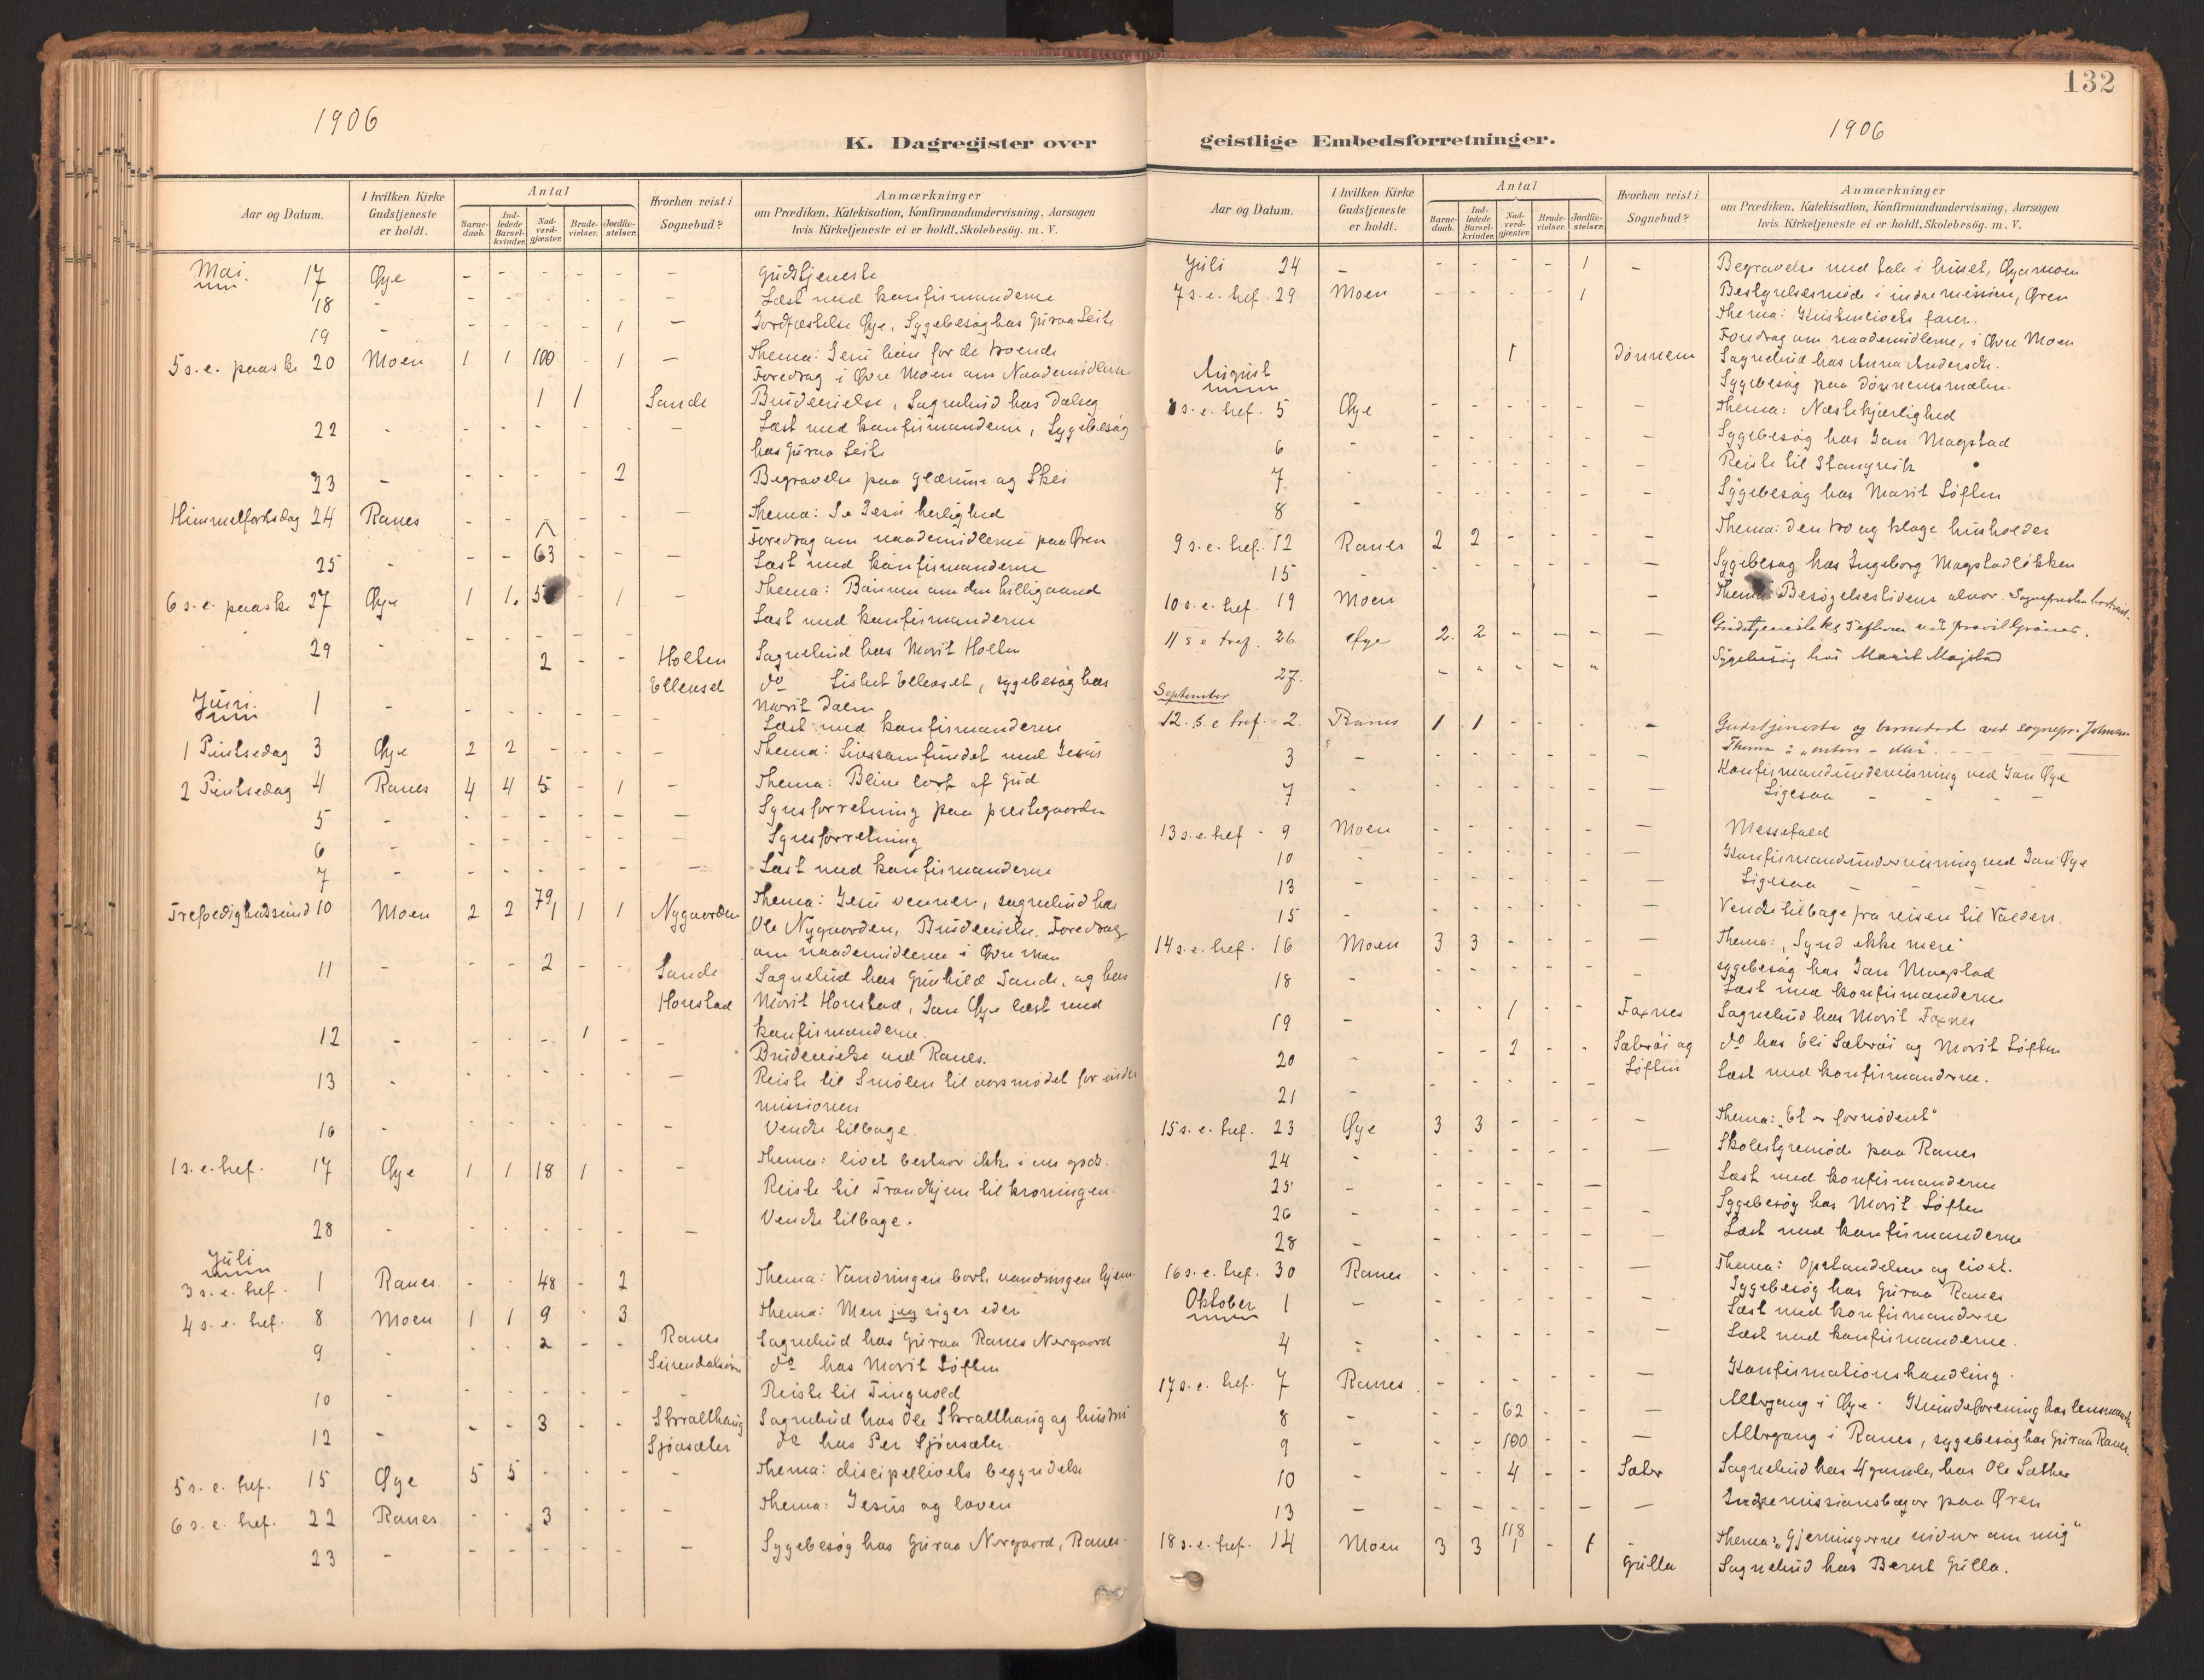 132
1906
1906
K. Dagregister over geistlige Embedsforretninger.
Aar og Datum. I hvilken Kirke Gudstjeneste er holdt. Antal Barnedaab. Indledede Barselkvinder. Nadverdgjæster. Brudevielser. Jordfæstelser. Hvorhen reist i Sognebud? Anmærkninger om Prædiken, Katekisation, Konfirmandundervisning, Aarsagen hvis Kirketjeneste ei er holdt, Skolebesøg. m. V.
Mai 17 Øye - - - - - - Gudstjeneste
18 - - - - - - - Læst med konfirmanderne
19 - - - - - 1 - Jordfæstelse Øye, Sygebesøg hos Guraa Leite
5 s. e. paaske 20 Moen 1 1 100 - 1 - Thema: Jesu bøn for de troende
Foredrag i Øvre Moen om Naademidlerne
1 1 Sande Brudevielse, Sognebud hos Dalseg
22 - - - - - - - Læst med konfirmanderne, Sygebesøg
hos Guraa Leite
23 - - - - - 2 Begravelse paa Glærum og Skei
Himmelfartsdag 24 Ranes - - - - - Thema: Se Jesu herlighed
Foredrag om naademidlerne paa Øren
25 - - - 63 - - - Læst med konfirmanderne
6 s. e. paaske 27 Øye 1 1. 5 - 1 - Thema: Bønnen om den hellig aand
Læst med konfirmanderne
29 - - - 2 - - Holten Sognebud hos Marit Holten
Ellenset do Lisbet Ellenset, sygebesøg hos
Marit Dalen
Juni 1 - - - - - - - Læst med konfirmanderne
1 Pintsedag 3 Øye 2 2 - - - - Thema: Livssamfundet med Jesus
2 Pintsedag 4 Ranes 4 4 5 - 1 - Thema: Blive lært af Gud
5 - - - - - - - Synsforretning paa prestegaarden
6 - - - - - - Synsforretning
7 - - - - - - - Læst med konfirmanderne
Trefoldighedssønd 10 Moen 2 2 79/1 1 1 Nygaarden Thema: Jesu venner, sognebud hos
Ole Nygaarden, Brudevielse. Foredrag
om naademidlerne i Øvre Moen
11 - - - 2 - Sande Sognebud hos Gunhild Sande, og hos
Honstad Marit Honstad, Jan Øye læst med
konfirmanderne.
12 - - - - 1 - - Brudevielse ved Ranes.
13 - - - - - - - Reiste til Smølen til aarsmødet for indre
missionen
16 - - - - - - - Vendte tilbage.
1 s. e. tref. 17 Øye 1 1 18 1 - - Thema: livet bestaar ikke i ens gods.
Reiste til Trondhjem til kroningen.
28 - - - - - - - Vendte tilbage.
Juli
3 s. e. tref. 1 Ranes - - 48 - 2 Thema: Vandringen bort, vandringen hjem
4 s. e. tref. 8 Moen 1 1 9 - 3 Thema: Men jeg siger eder
9 - - - 2 - - Ranes Sognebud hos Guraa Ranes Nergaard
do hos Marit Løften
10 - - - - - - - Reiste til Tingvold
12 - - - 3 - - Skralthaug Sognebud hos Ole Skralthaug og hustru
Sjøasæter do hos Per Sjøasæter.
5 s. e. tref. 15 Øye 5 5 - - - - Thema: discipellivets begyndelse
6 s. e. tref. 22 Ranes - - 3 - - - Thema: Jesus og loven
23 - - - - - - - Sygebesøg hos Guraa Nergaard, Ranes.
Aar og Datum. I hvilken Kirke Gudstjeneste er holdt. Antal Barnedaab. Indledede Barselkvinder. Nadverdgjæster. Brudevielser. Jordfæstelser. Hvorhen reist i Sognebud? Anmærkninger om Prædiken, Katekisation, Konfirmandundervisning, Aarsagen hvis Kirketjeneste ei er holdt, Skolebesøg. m. V.
Juli 24 - - - - - 1 - Begravelse med tale i huset, Øyamoen
7 s. e. tref. 29 Moen - - - - 1 Bestyrelsesmøde i indremission, Øren
Thema: Kristenlivets farer.
Foredrag om naademidlerne, i Øvre Moen
1 Dønnem Sognebud hos Anna Andersdtr.
August Sygebesøg paa Dønnemsmælen.
8 s. e. tref. 5 Øye - - - - - - Thema: Næstekjærlighed
6 - - - - - - - Sygebesøg hos Jan Magstad
7 - - - - - - - Reiste til Stangvik
8 - - - - - - - Sygebesøg hos Marit Løften
9 s. e. tref. 12 Ranes 2 2 - - - - Thema: Den tro og kloge husholder
15 - - - - - - Sygebesøg hos Ingeborg Magstadløkken
10 s. e. tref. 19 Moen - Thema Besøgelsestidens alvor. Sognepresten bortreist.
11 s e tref. 26 Øye 2. 2 - - - - Gudstjeneste ved provst Grønes.
27. - - - - Sygebesøg hos Marit Magstad
September
12. s e tref. 2. Ranes 1 1 - - - - Gudstjeneste og barnedaab ved sognepr. Johnsen
Thema: „enten - eller".
3 - - - - - - - Konfirmandundervisning ved Jan Øye
7 - - - - - - - Ligesaa - - -
13 s. e. tref - 9 Moen - - - - - - Messefald
10 - - - - - - - Konfirmandundervisning ved Jan Øye
13 - - - - - - - Ligesaa - - -
15 - - - - - - - Vendte tilbage fra reisen til Valders.
14 s. e. tref. 16 Moen 3 3 - - - - Thema: „Synd ikke mere"
18 - - - - - - - sygebesøg hos Jan Magstad
Læst med konfirmanderne
19 - - - 1 - - Foxnes Sognebud hos Marit Foxnes
20 - - - 2 - - Sæterøi og do hos Eli Sæterøi og Marit Løften
21 - - - - - - Løften Læst med konfirmanderne.
15 s. e. tref. 23 Øye 3 3 - - - - Thema: „Et er fornødent"
24 - - - - - - - Skolestyremøde paa Ranes
25 - - - - - - - Læst med konfirmanderne
26 - - - - - - - Sygebesøg hos Marit Løften
28 - - - - - - - Læst med konfirmanderne
16 s. e. tref. 30 Ranes - - - - - - Thema: Opstandelsen og livet.
Oktober 1 - - - - - - Sygebesøg hos Guraa Ranes
Læst med konfirmanderne
4 - - - - - - - Læst med konfirmanderne.
17 s. e. tref. 7 Ranes - - - - - - Konfirmationshandling.
8 - - - 62 - - - Altergang i Øye. Kvindeforening hos lensmanden
9 - - - 100 - - - Altergang i Ranes, sygebesøg hos Guraa Ranes.
10 - - - 4 - - Sæter Sognebud hos 4 gamle, hos Ole Sæther
13 - - - - - - - Indremissionsbazar paa Øren
18 s. e. tref. 14 Moen 3 3 118/1 - 1 - Thema: „Gjerningerne vidner om mig"
Gulla Sognebud hos Bernt Gulla.